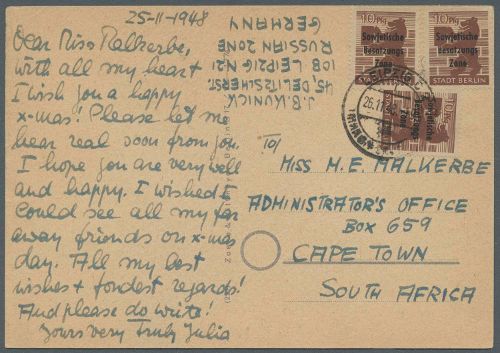 25-11-1948
Dear Miss Malkerbe,
with all my heart
I wish you a happy
x-mas! Please let me
hear real soon from you.
I hope you are very well
and happy. I wished I
could see all my far
away friends on x-mas
day. All my best
wishes + fondest regards!
And please do write!
Yours very truly Julia
J.B. KUNICK
45, DELITZSCHERST.
10B LEIPZIG N21
RUSSIAN ZONE
GERMANY
10 Pfg
Sowjetische
Besatzungs
Zone
STADT BERLIN
10 Pfg
Sowjetische
Besatzungs
Zone
STADT BERLIN
10
Sowjetische
Besatzungs
Zone
LEIPZIG
26.11.
To/
MISS M.E. MALKERBE
ADMINISTRATOR'S OFFICE
BOX 659
CAPE TOWN
SOUTH AFRICA